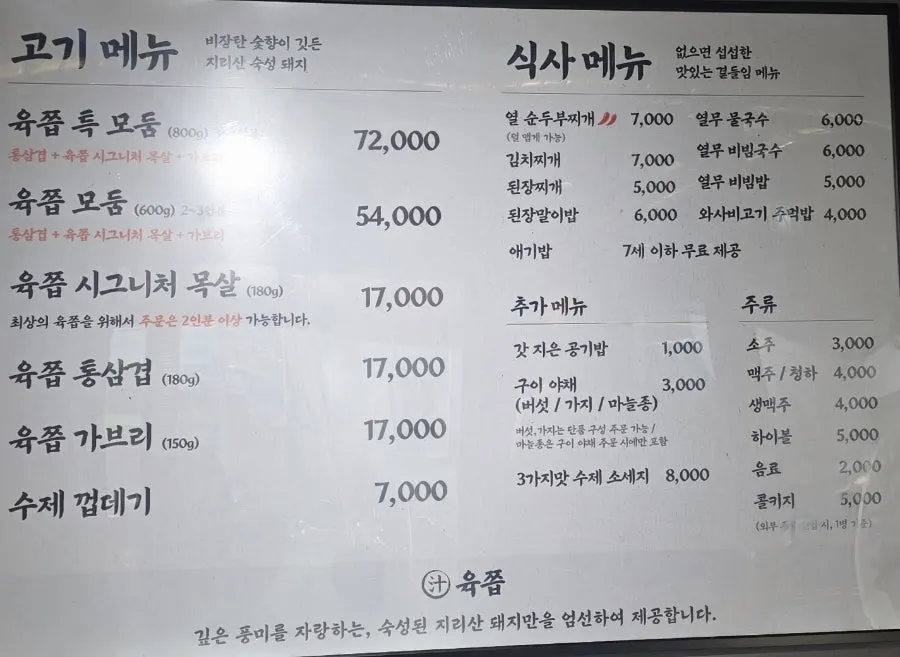 고기 메뉴
비장탄 숯향이 깃든
지리산 숙성 돼지
육쯥 특 모둠 (800g)
통삼겹 + 육쯥 시그니처 목살 + 가브리
72,000
육쯥 모둠 (600g) 2~3인분
통삼겹 + 육쯥 시그니처 목살 + 가브리
54,000
육쯥 시그니처 목살 (180g) 17,000
최상의 육쯥을 위해서 주문은 2인분 이상 가능합니다.
육쯥 통삼겹 (180g) 17,000
육쯥 가브리 (150g) 17,000
수제 껍데기 7,000
식사 메뉴
없으면 섭섭한
맛있는 곁들임 메뉴
열 순두부찌개 7,000
(덜 맵게 가능)
김치찌개 7,000
된장찌개 5,000
된장말이밥 6,000
애기밥 7세 이하 무료 제공
열무 물국수 6,000
열무 비빔국수 6,000
열무 비빔밥 5,000
와사비고기 주먹밥 4,000
추가 메뉴
갓 지은 공기밥 1,000
구이 야채 3,000
(버섯 / 가지 / 마늘종)
버섯, 가지는 단품 구성 주문 가능 /
마늘종은 구이 야채 주문 시에만 포함
3가지맛 수제 소세지 8,000
주류
소주 3,000
맥주 / 청하 4,000
생맥주 4,000
하이볼 5,000
음료 2,000
콜키지 5,000
(외부 시, 1병 기준)
汁 육쯥
깊은 풍미를 자랑하는, 숙성된 지리산 돼지만을 엄선하여 제공합니다.